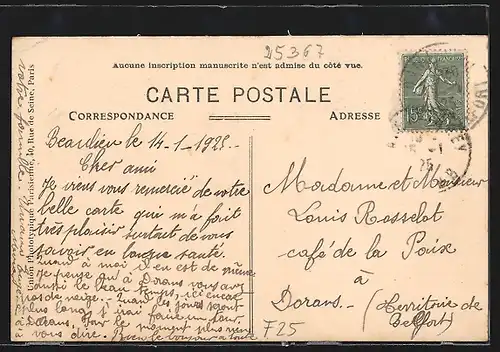 25367
Aucune inscription manuscrite n'est admise du côté vue.
CARTE POSTALE
CORRESPONDANCE
ADRESSE
Union Phototypique Parisienne, 10, Rue de Seine, Paris
Beaulieu le 14-1-1925
Cher ami
Je viens vous remercié de votre
belle carte qui m'a fait
très plaisir surtout de vous
savoir en bonne santé
quand à moi il en est de même
je pense qu'à Dorans vous avez
aussi le beau temps, ici encore
pas de neige. Quand les jours seront
plus long j'irai faire un tour
Dorans. Par le moment plus rien
vous dire. Bien le bonjour à toute
votre famille.
Madame et Monsieur
Louis Rosselot
café de la Paix
à
Dorans
(Territoire de
Belfort)
F25
15